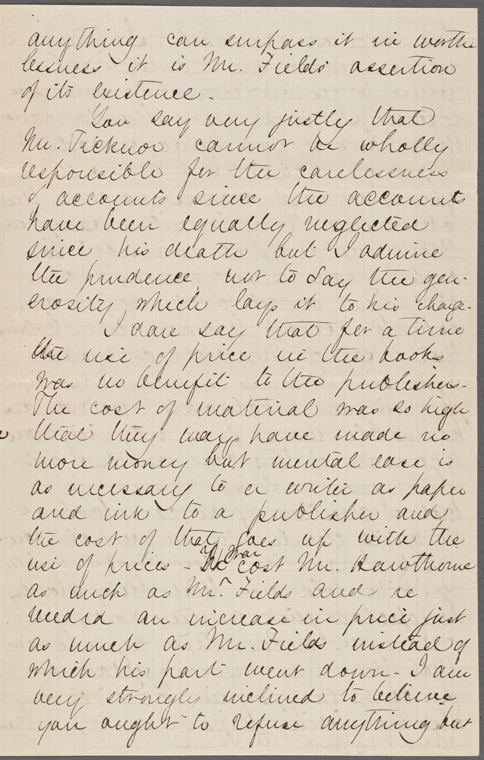 anything can surpass it in worth
lessness it is Mr. Fields' assertion
of its existence.
You say very justly that
Mr. Ticknor cannot be wholly
responsible for the carelessness
of accounts since the accounts
have been equally neglected
since his death but I admire
the prudence, not to say the gen-
erosity which lays it to his charge.
I dare say that for a time
the rise of price in the books
was no benefit to the publishers.
The cost of material was so high
that they may have made no
more money but mental ease is
as necessary to a writer as paper
and ink to a publisher and
the cost of that goes up with the
rise of prices - The War cost Mr. Hawthorne
as much as Mr. Fields and re
needed an increase in price just
as much as Mr. Fields instead of
which his part went down - I am
very strongly inclined to believe
you ought to refuse anything but